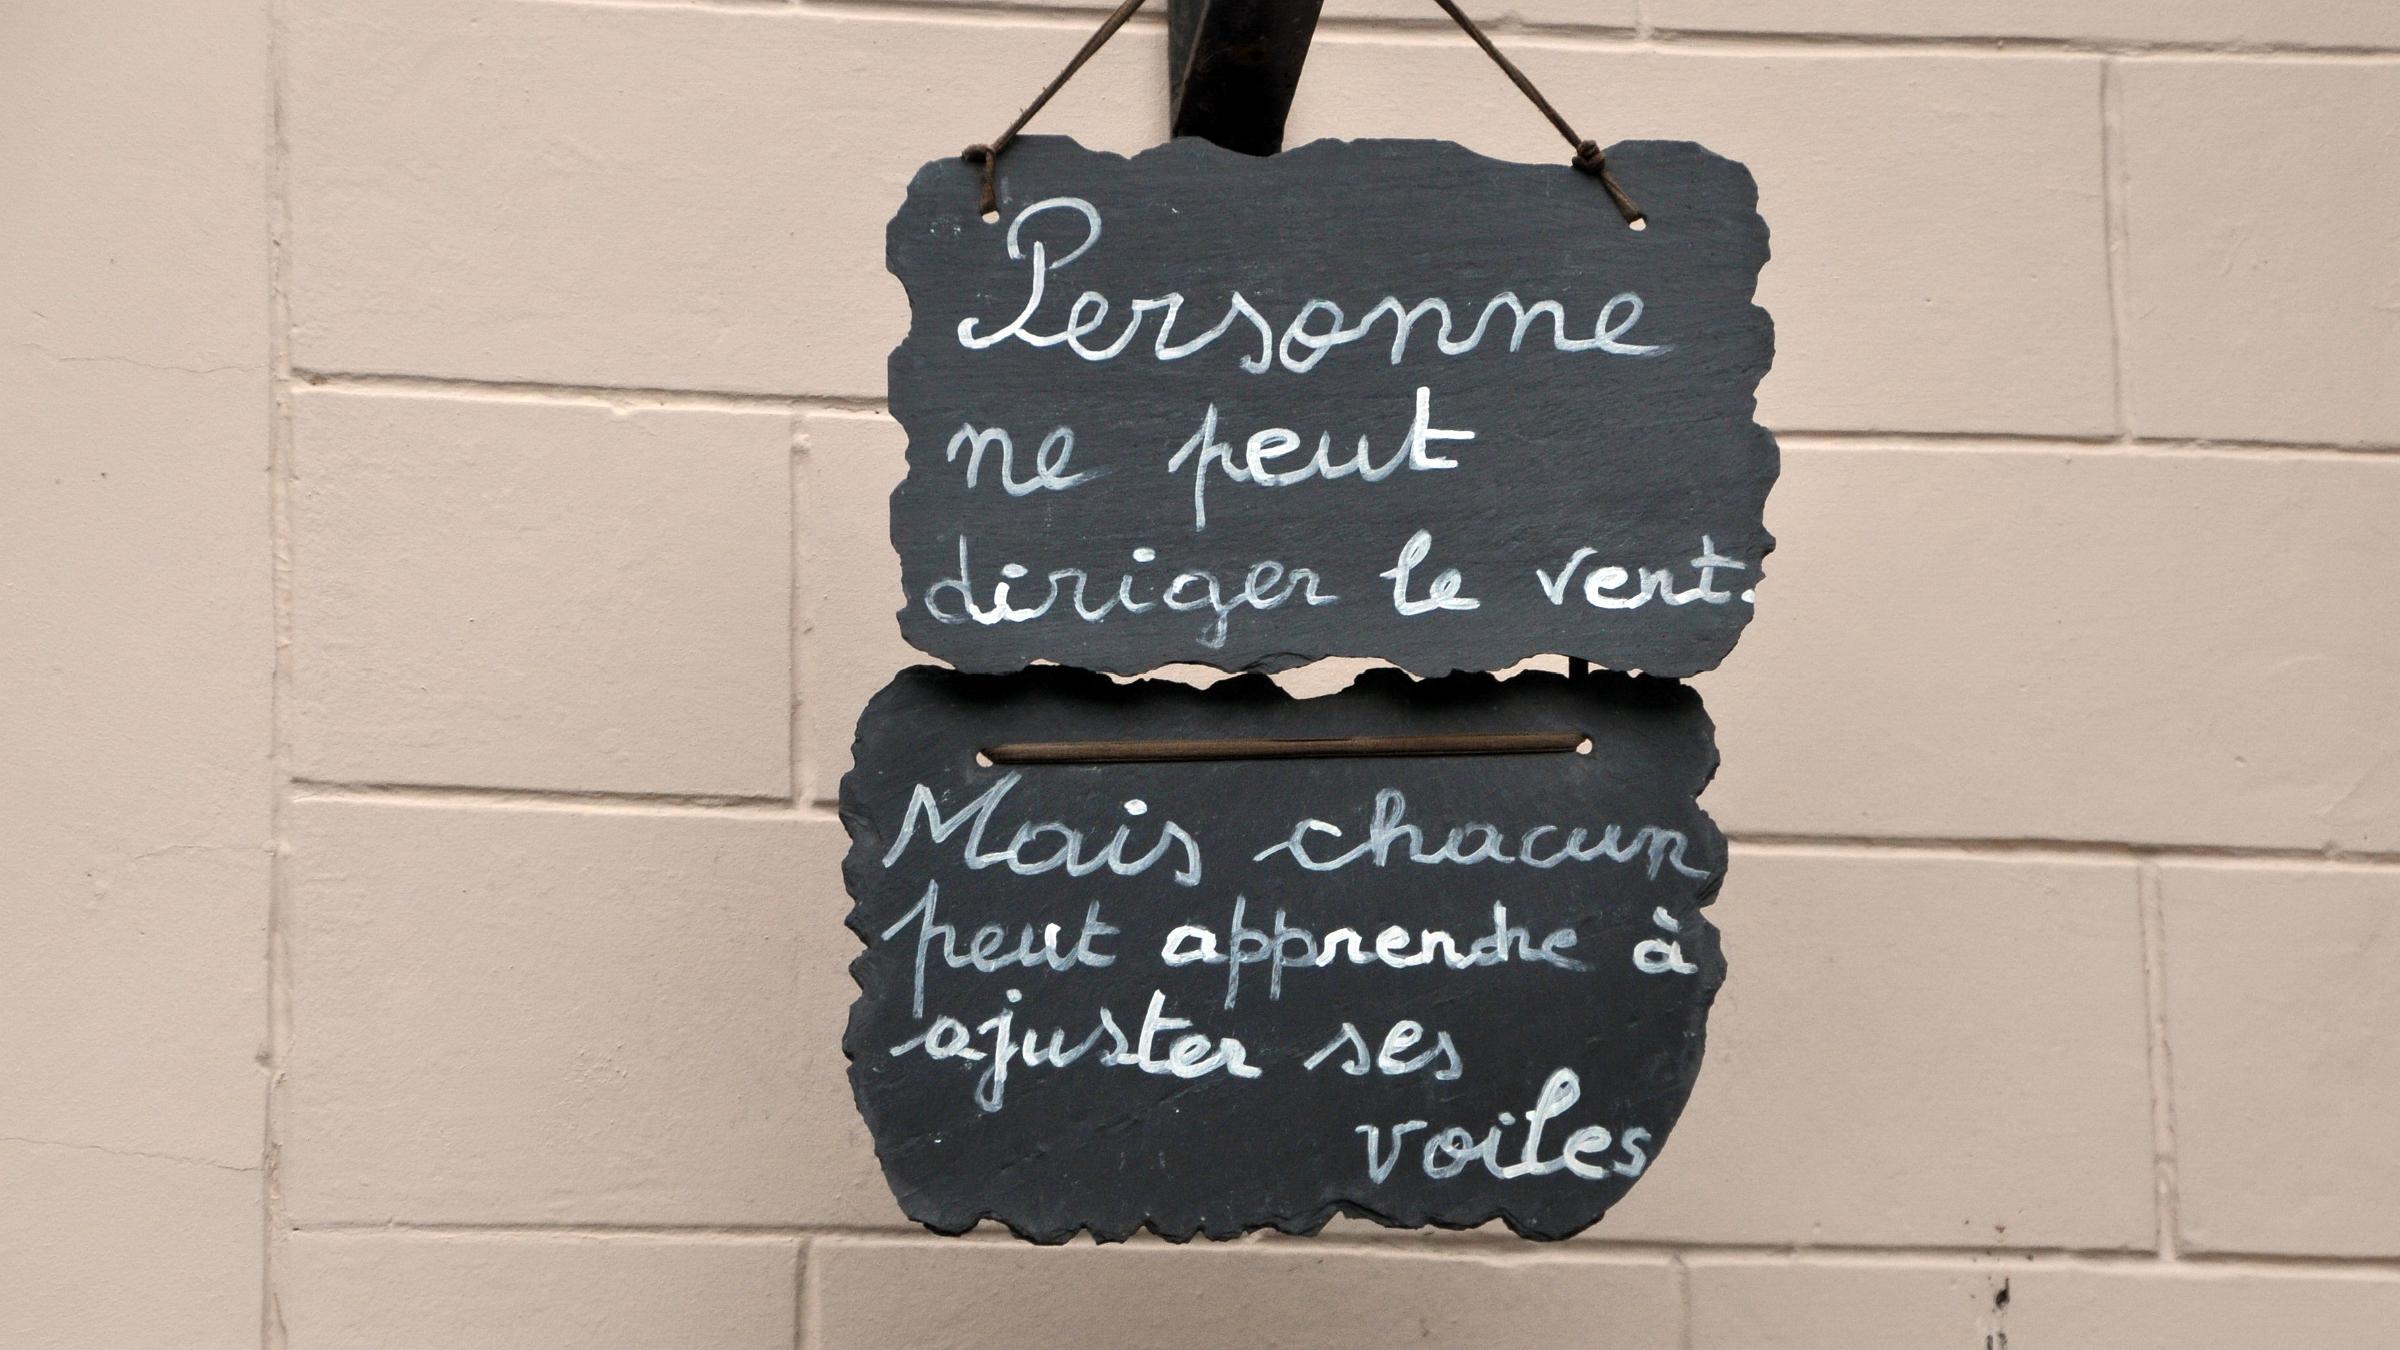 Personne
ne peut
diriger le vent.
Mais chacun
peut apprendre à
ajuster ses
voiles